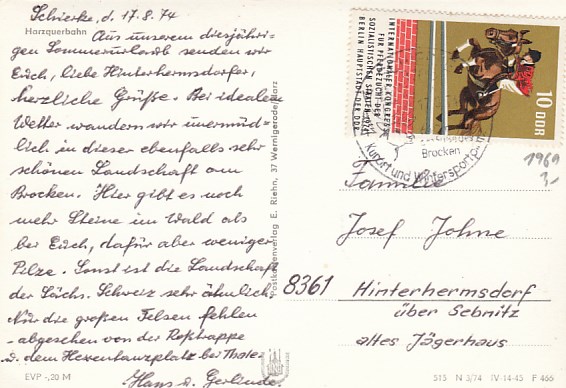 Schierke, d. 17.8.74
Harzquerbahn
Aus unserem diesjähri-
gen Sommerurlaub senden wir
Euch, liebe Hinterhermsdorfer,
herzliche Grüße. Bei idealem
Wetter wandern wir unermüd-
lich in dieser ebenfalls sehr
schönen Landschaft am
Brocken. Hier gibt es noch
mehr Steine im Wald als
bei Euch, dafür aber weniger
Pilze. Sonst ist die Landschaft
der Sächs. Schweiz sehr ähnlich.
Nur die großen Felsen fehlen
- abgesehen von der Roßtrappe
u. dem Hexentanzplatz bei Thale.
Hans u. Gerlinde
EVP -,20 M
Postkartenverlag E. Riehn, 37 Wernigerode/Harz
INTERNATIONALER KONGRESS
FÜR PFERDEZUCHT DER
SOZIALISTISCHEN STAATEN 1974
BERLIN HAUPTSTADT DER DDR
10 DDR
Brocken
Kurort und Wintersportpl
1969
3,-
Familie
Josef Johne
8361 Hinterhermsdorf
über Sebnitz
altes Jägerhaus
515 N 3/74 IV-14-45 F 466